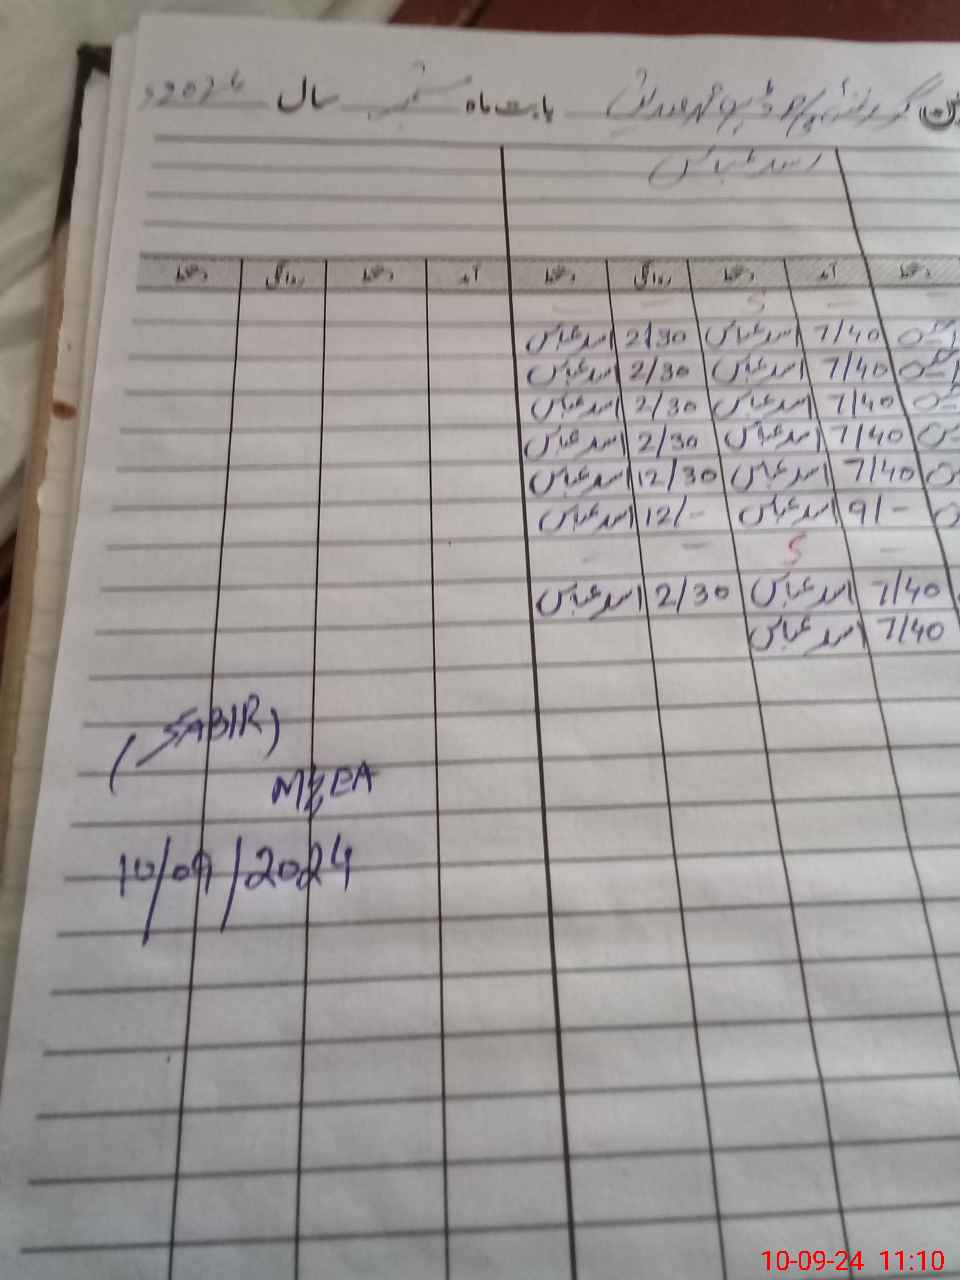 بابت ماہ ستمبر سال 2024ء
اسد عباس
دستخط آمد دستخط روانگی دستخط آمد دستخط روانگی دستخط
— — S — —
7/40 اسد عباس 2/30 اسد عباس
7/40 اسد عباس 2/30 اسد عباس
7/40 اسد عباس 2/30 اسد عباس
7/40 اسد عباس 2/30 اسد عباس
7/40 اسد عباس 12/30 اسد عباس
9/- اسد عباس 12/- اسد عباس
— S — —
7/40 اسد عباس 2/30 اسد عباس
7/40 اسد عباس
(SABIR)
MEA
10/09/2024
10-09-24 11:10